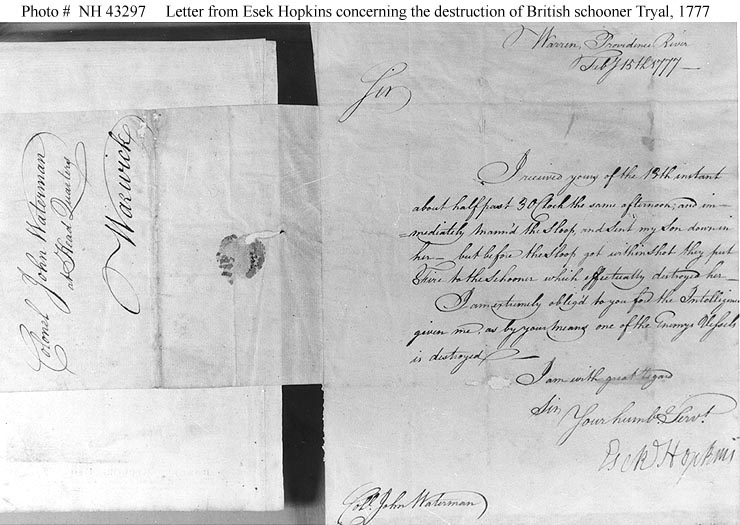 Photo # NH 43297 Letter from Esek Hopkins concerning the destruction of British schooner Tryal, 1777
Colonel John Waterman
at Head Quarters
Warwick
Warren, Providence River
Feby 15th 1777
Sir
I received yours of the 13th instant
about half past 3 O Clock the same afternoon; and im=
=mediately Mann'd the Sloop, and sent my Son down in
her — but before the Sloop got within shot they put
Fire to the Schooner which effectually destroyed her —
I am extremely oblig'd to you for the Intelligence
given me, as by your means one of the Enemys Vessels
is destroyed —
I am with great Regard
Sir
Your humbe Servt
Esek Hopkins
Coll. John Waterman